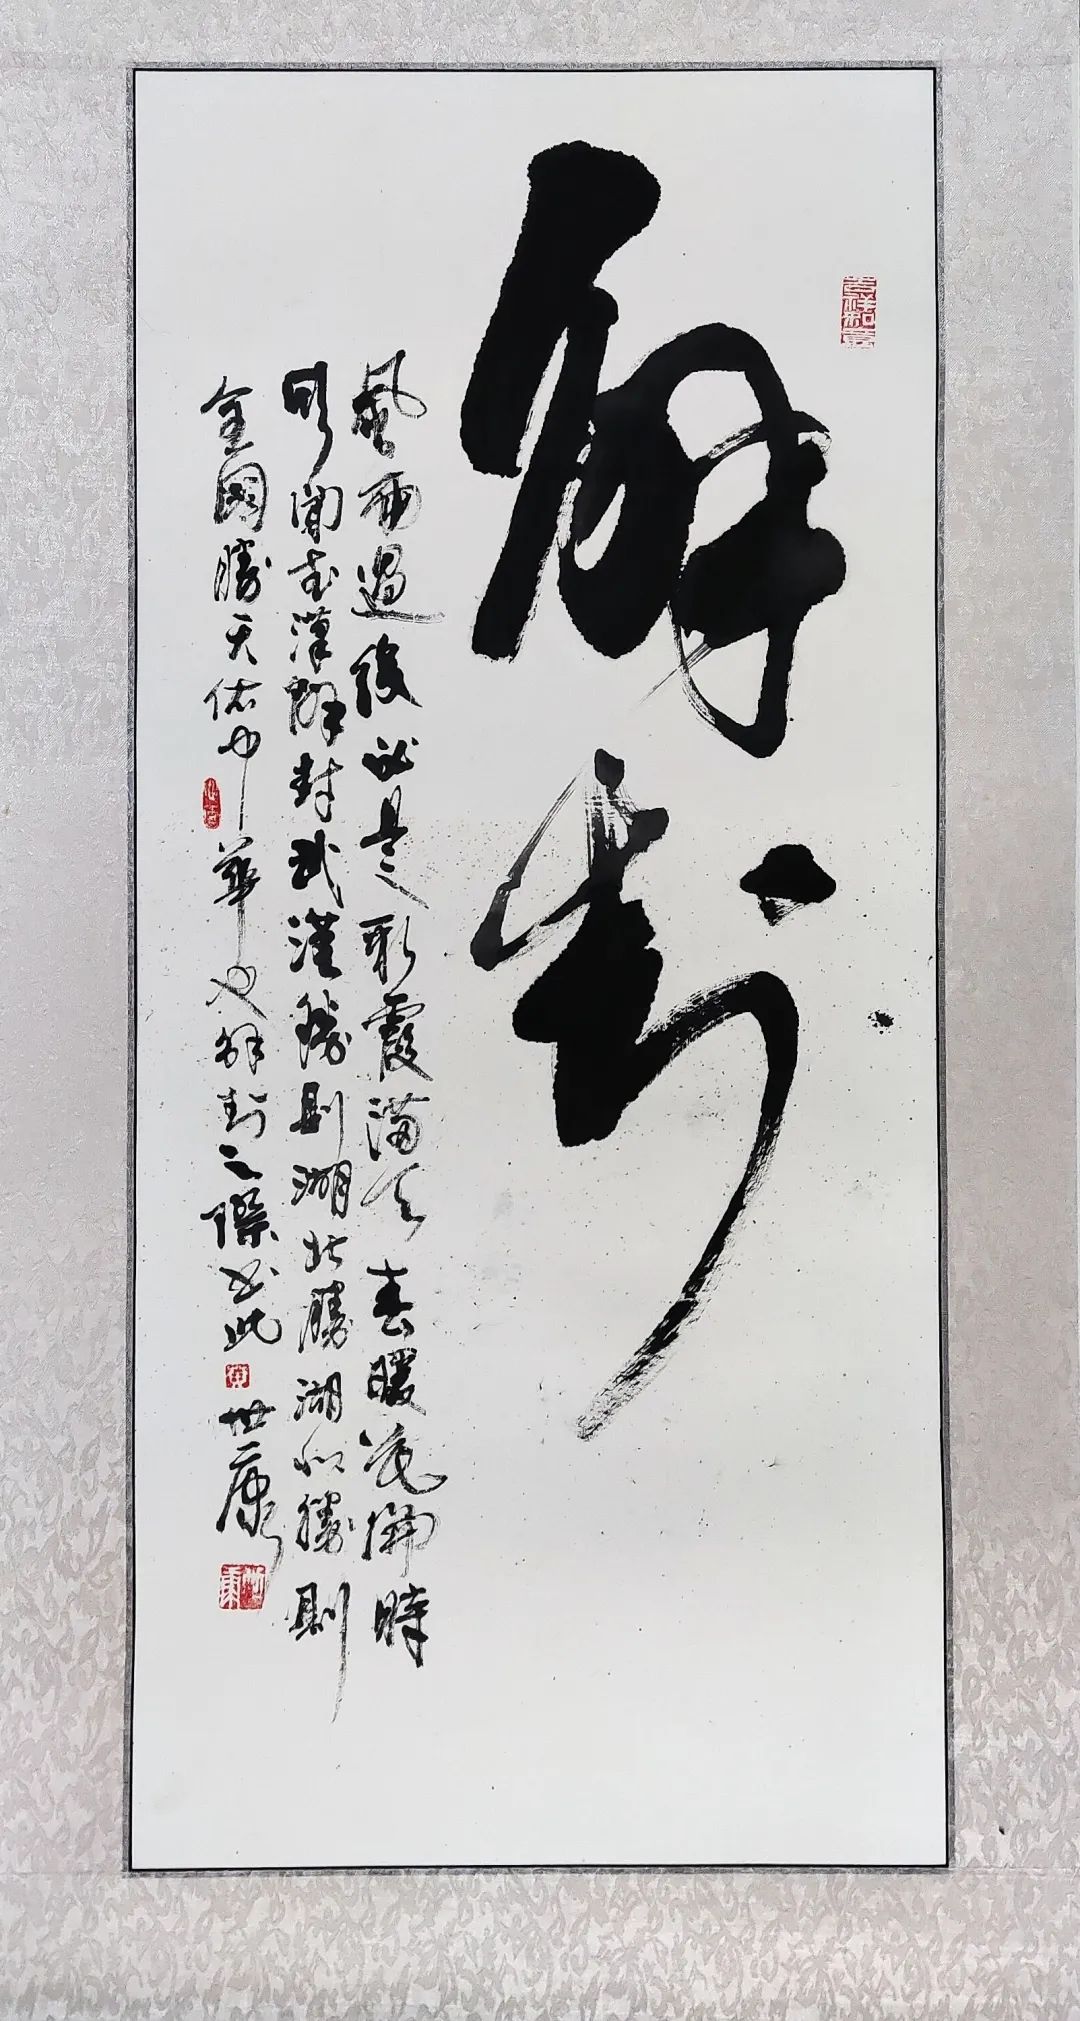 解封
風雨過後必是彩霞滿天春暖花開時
欣聞武漢解封武漢勝則湖北勝湖北勝則
全國勝天佑中華也解封之際書此
世康